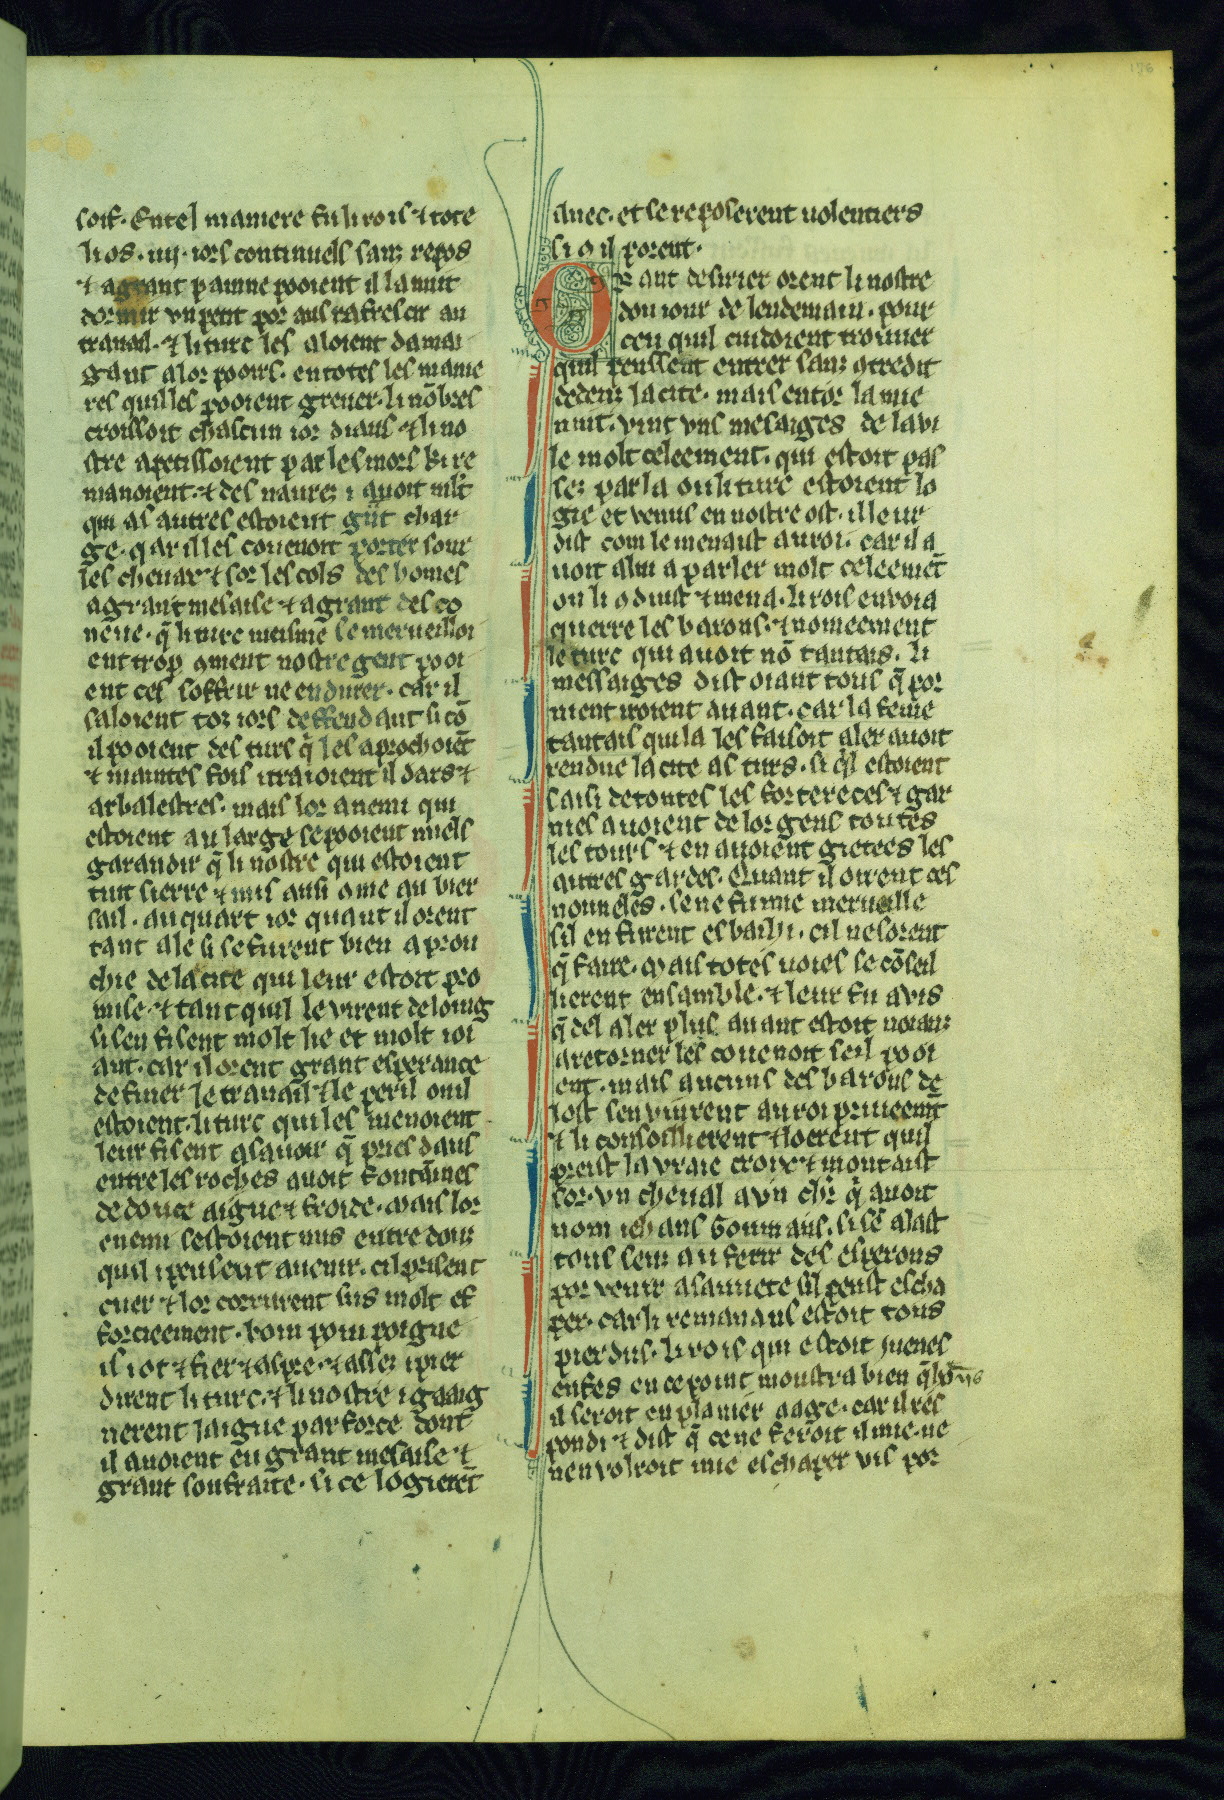 soif. Entel maniere fu li rois ⁊ tote
li os. iiij. iors continuels sanz repos
⁊ a grant painne pooient il la nuit
dormir vn peut por aus rafrescir au
trauail. ⁊ li turc les aloient damai
gant a lor pooirs. en totes les manie
res quil les pooient greuer. li nōbres
croissoit chascun ior diaus ⁊ li no
stre apetissoient par les mors ki re
manoient. ⁊ des naurez i auoit mlt
qui as autres estoient gnt char
ge. qar il les couenoit porter sour
les cheuax ⁊ sor les cols des homes
a grant mesaise ⁊ a grant desco
neue. q̄ li turc meisme se merueilloi
ent trop ɔment nostre gent pooi
ent ces soffrir ne endurer. car il
saloient toz iors deffendant si cō
il pooient des turs q̄ les aprochoiēt
⁊ maintes fois itraioient il dars ⁊
arbalestres. mais lor anemi qui
estoient au large se pooient miels
garandir q̄ li nostre qui estoient
tuit sierre ⁊ mis ausi ɔme au bier
sail. au quart ior quant il orent
tant ale si se furent bien aprou
chie de la cite qui leur estoit pro
mise. ⁊ tant quil le virent de loing
si sen fisent molt lie et molt ioi
ant. car il orent grant esperance
de finer le trauail ⁊ le peril ou il
estoient. li turc qui les menoient
leur fisent a sauoir q̄ pries daus
entre les roches auoit fontāines
de douce aigue ⁊ froide. mais lor
enemi sestoient mis entre dous
quil i peusent auenir. cil prisent
cuer ⁊ lor corrurent sus molt ef
forcieement. bom pom poigne
is i ot ⁊ fier ⁊ aspre. ⁊ assez i pier
dirent li turc. ⁊ li nostre i gaaig
nerent laigue par force dont
il auoient eu grant mesaise ⁊
grant soufraite. si ce logierēt
auec. et se reposerent uolentiers
si ɔ il porent.
Grant desirier orent li nostre
dou iour de lendemain. pour
ceu quil cuidoient trouuer
quil peussent entrer sanz ɔtredit
dedenz la cite. mais entor la mie
nuit. vint vns mesaiges de la vi
le molt celeement. qui estoit pas
sez par la ou li turc estoient lo
gie et venus en nostre ost. il leur
dist com le menast au roi. car il a
uoit alui a parler molt celeemēt
on li ɔduist ⁊ mena. li rois enuoia
querre les barons. ⁊ nomeement
le turc qui auoit nō tantais. li
messaiges dist oiant tous q̄ por
nient iroient auant. car la feme
tantais qui la les faisoit aler auoit
rendue la cite as turs. si q̄l estoient
saisi de toutes les fortereces ⁊ gar
nies auoient de lor gens toutes
les tours ⁊ en auoient gietees les
autres gardes. Quant il oirent ces
nouueles. se ne fu mie merueille
sil en furent esbaihi. cil ne sorent
q̄ faire. mais totes uoies se cōseil
lierent ensamble. ⁊ leur fu avis
q̄ del aler plus auant estoit noianz
a retorner les couenoit seil pooi
ent. mais aucuns des barons de
lost sen vinrent au roi priueemt
⁊ li consoillierent ⁊ loerent quil
preist la vraie croix ⁊ montast
sor. vn cheual a vn chr̄ q̄ auoit
nom iehans Goumans. si sē alast
tous seuz au ferir des esperons
por venir a sauuete sil peust escha
per. car li remanans estoit tous
pierdus. li rois qui estoit iuenes
enfes en ce point moustra bien q̄
il seroit en planier aage. car il res
pondi ⁊ dist q̄ ce ne feroit il mie. ne
nen volroit mie eschaper vis por